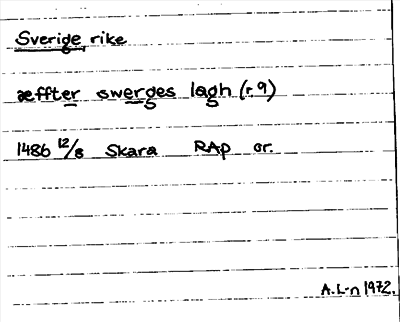 Sverige rike
æffter swerges lagh (r. 9)
1486 12/8 Skara RAp or.
A.L-n 1972.